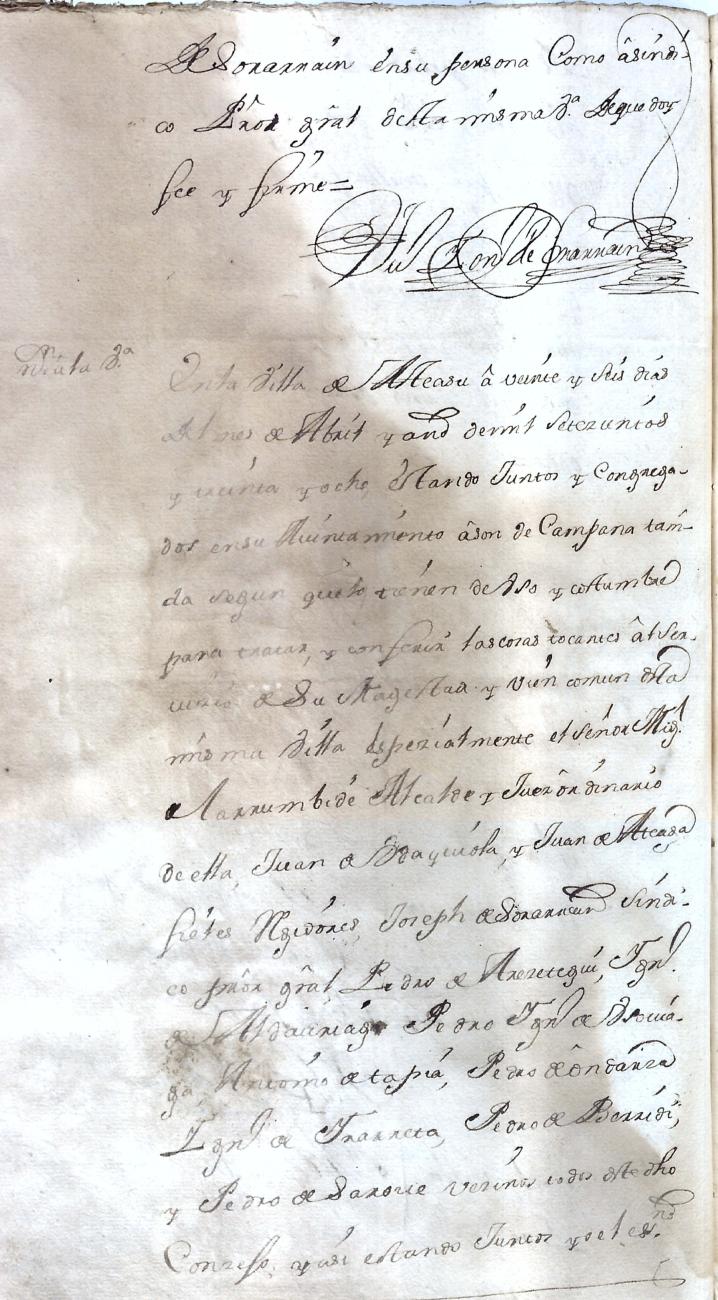 de Sorarrain ensu persona Como âsindi-
co Prôr grâl desta misma Vª. de que doy
fee y firme =
de Ynarrain
Vª.
Enla Villa de Alteasu â veinte y seis dias
del mes de Abril y año demil setezientos
y treinta y ocho, estando Juntos y Congrega-
dos ensu Aiuntamiento âson de Campana tañi-
da segun quelo tienen de Vso y costumbre
para tratar, y conferir las cosas tocantes âl ser-
uicio de Su Magestad y vien comun desta
misma Villa espezialmente el señor Migl.
de Larrumbide Alcalde y Juez ôrdinario
de ella, Juan de y Juan de Alcega
fieles Rexidores, Joseph de Sorarrain Sindi-
co prôr grâl Pedro de Arezetegui, Ygnº.
de Aldaiariaga Pedro Ygnº de Vsouia-
ga, Antonio de tapia, Pedro de ôndarza
Ygnº. de Ynarreta, Pedro de Berridi,
y Pedro de Sarove vezinos todos deste dho
Conzejo, y asi estando Juntos yo el essno.